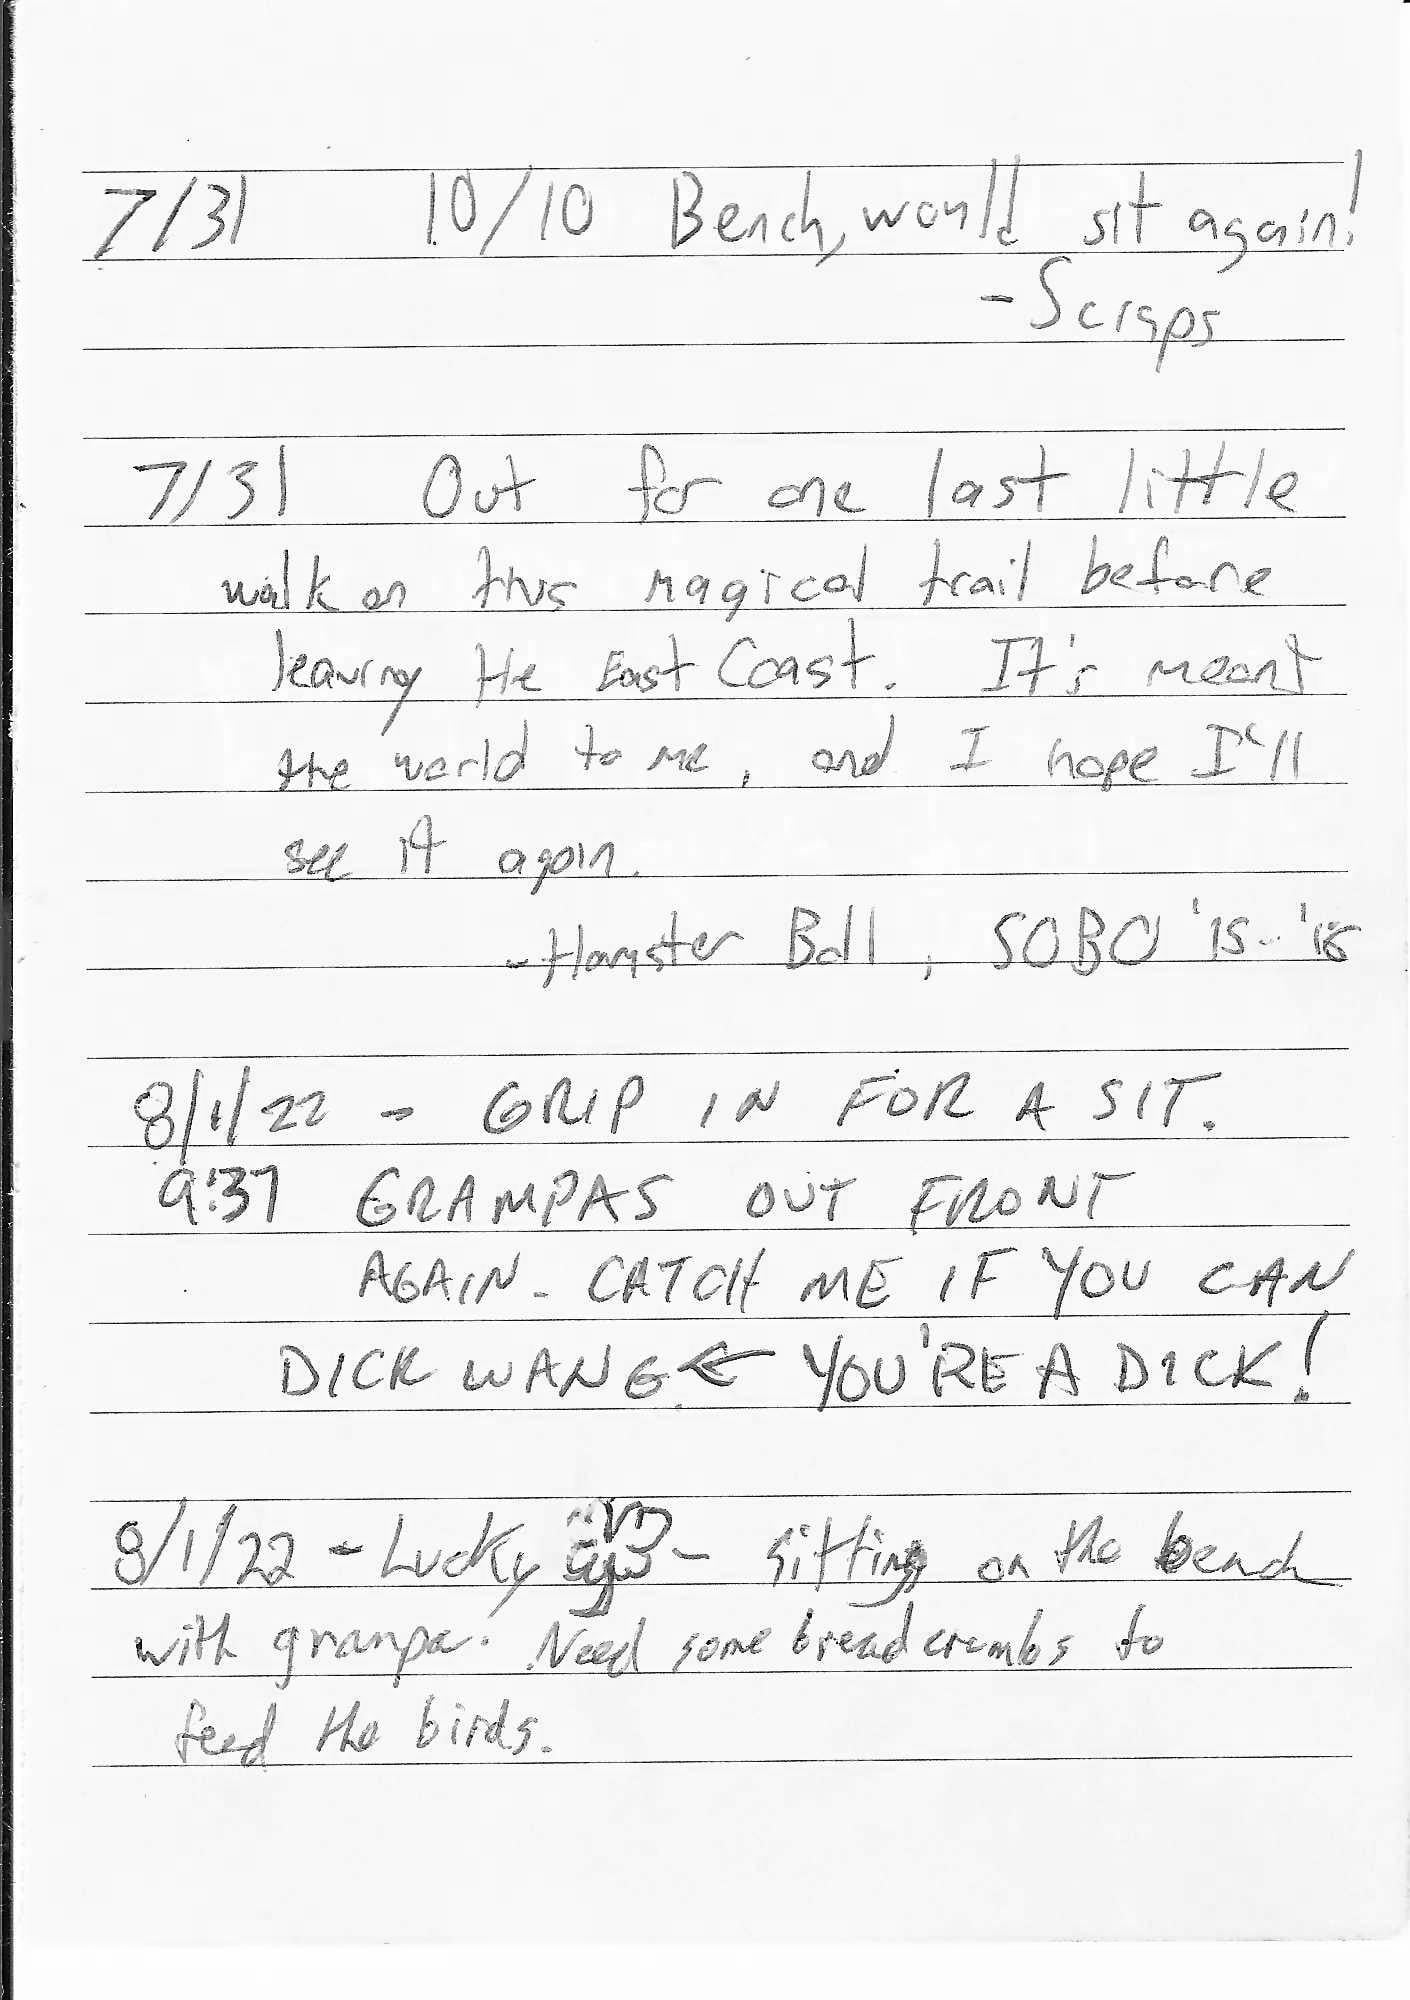 7/31 10/10 Bench, would sit again!
- Scraps
7/31 Out for one last little
walk on this magical trail before
leaving the East Coast. It's meant
the world to me, and I hope I'll
see it again.
- Hamster Ball, SOBO '15-'18
8/1/22 - GRIP IN FOR A SIT.
9:37 GRAMPAS OUT FRONT
AGAIN - CATCH ME IF YOU CAN
DICK WANG ← YOU'RE A DICK!
8/1/22 - Lucky - sitting on the bench
with grampa. Need some bread crumbs to
feed the birds.